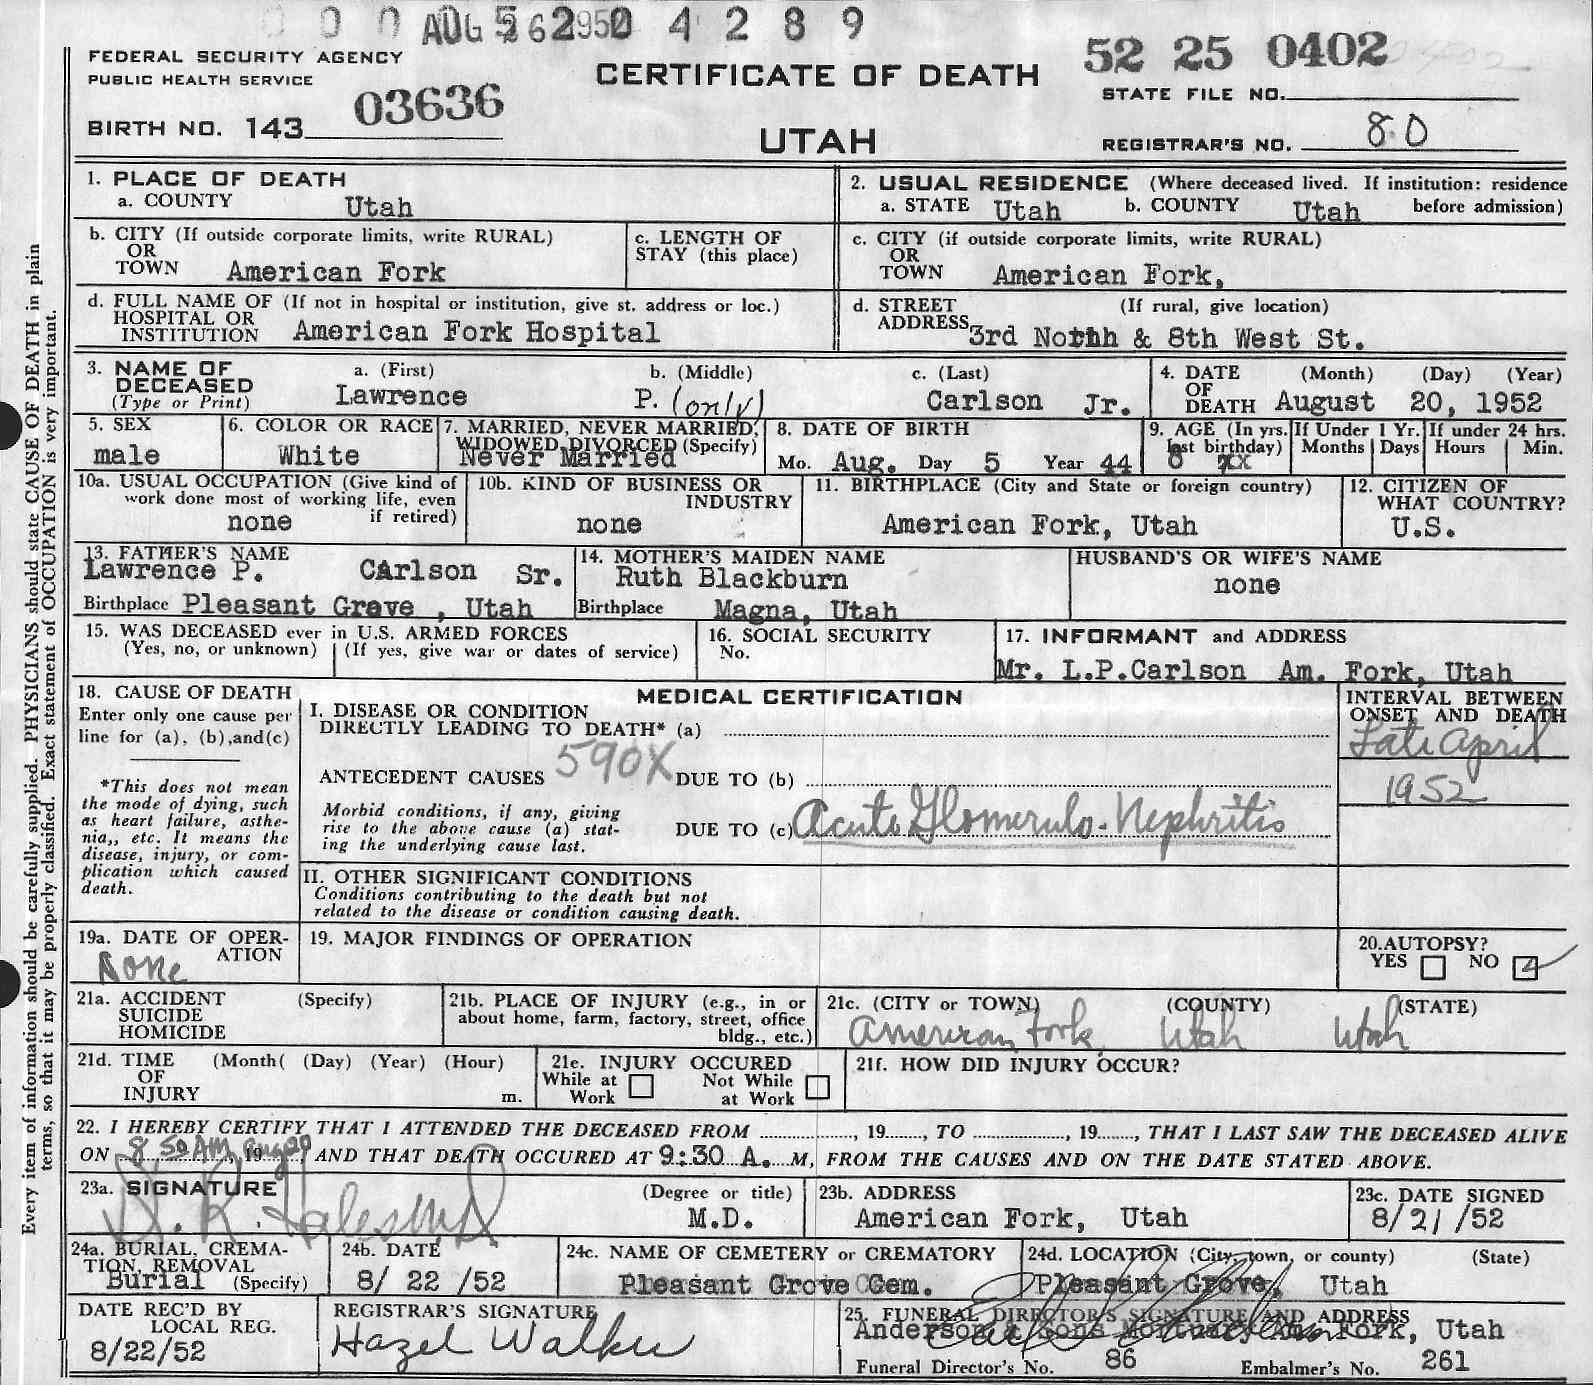 4 2 8 9
FEDERAL SECURITY AGENCY
PUBLIC HEALTH SERVICE
CERTIFICATE OF DEATH
52 25 0402
STATE FILE NO.
BIRTH NO. 143 03636
UTAH
REGISTRAR'S NO. 80
1. PLACE OF DEATH
a. COUNTY Utah
2. USUAL RESIDENCE (Where deceased lived. If institution: residence
a. STATE Utah b. COUNTY Utah before admission)
b. CITY (If outside corporate limits, write RURAL)
OR
TOWN American Fork
c. LENGTH OF
STAY (this place)
c. CITY (if outside corporate limits, write RURAL)
OR
TOWN American Fork,
d. FULL NAME OF (If not in hospital or institution, give st. address or loc.)
HOSPITAL OR
INSTITUTION American Fork Hospital
d. STREET (If rural, give location)
ADDRESS 3rd North & 8th West St.
3. NAME OF
DECEASED
(Type or Print)
a. (First) b. (Middle) c. (Last)
Lawrence P. (only) Carlson Jr.
4. DATE (Month) (Day) (Year)
OF
DEATH August 20, 1952
5. SEX
male
6. COLOR OR RACE
White
7. MARRIED, NEVER MARRIED,
WIDOWED, DIVORCED (Specify)
Never Married
8. DATE OF BIRTH
Mo. Aug. Day 5 Year 44
9. AGE (In yrs.
last birthday)
8 xx
If Under 1 Yr.
Months Days
If under 24 hrs.
Hours Min.
10a. USUAL OCCUPATION (Give kind of
work done most of working life, even
if retired)
none
10b. KIND OF BUSINESS OR
INDUSTRY
none
11. BIRTHPLACE (City and State or foreign country)
American Fork, Utah
12. CITIZEN OF
WHAT COUNTRY?
U.S.
13. FATHER'S NAME
Lawrence P. CArlson Sr.
Birthplace Pleasant Grove , Utah
14. MOTHER'S MAIDEN NAME
Ruth Blackburn
Birthplace Magna, Utah
HUSBAND'S OR WIFE'S NAME
none
15. WAS DECEASED ever in U.S. ARMED FORCES
(Yes, no, or unknown) (If yes, give war or dates of service)
16. SOCIAL SECURITY
No.
17. INFORMANT and ADDRESS
Mr. L.P.Carlson Am. Fork, Utah
18. CAUSE OF DEATH
Enter only one cause per
line for (a), (b),and(c)
*This does not mean
the mode of dying, such
as heart failure, asthe-
nia,, etc. It means the
disease, injury, or com-
plication which caused
death.
MEDICAL CERTIFICATION
I. DISEASE OR CONDITION
DIRECTLY LEADING TO DEATH* (a)
ANTECEDENT CAUSES 590X DUE TO (b)
Morbid conditions, if any, giving
rise to the above cause (a) stat-
ing the underlying cause last.
DUE TO (c) Acute Glomerulo-Nephritis
INTERVAL BETWEEN
ONSET AND DEATH
Late April
1952
II. OTHER SIGNIFICANT CONDITIONS
Conditions contributing to the death but not
related to the disease or condition causing death.
19a. DATE OF OPER-
ATION
None
19. MAJOR FINDINGS OF OPERATION
20.AUTOPSY?
YES NO
21a. ACCIDENT (Specify)
SUICIDE
HOMICIDE
21b. PLACE OF INJURY (e.g., in or
about home, farm, factory, street, office
bldg., etc.)
21c. (CITY or TOWN) (COUNTY) (STATE)
American Fork Utah Utah
21d. TIME (Month( (Day) (Year) (Hour)
OF
INJURY m.
21e. INJURY OCCURED
While at Work Not While at Work
21f. HOW DID INJURY OCCUR?
22. I HEREBY CERTIFY THAT I ATTENDED THE DECEASED FROM , 19 , TO , 19 , THAT I LAST SAW THE DECEASED ALIVE
ON 8 50 AM, Aug 20 19 , AND THAT DEATH OCCURED AT 9:30 A. M, FROM THE CAUSES AND ON THE DATE STATED ABOVE.
23a. SIGNATURE (Degree or title)
M.D.
23b. ADDRESS
American Fork, Utah
23c. DATE SIGNED
8/21/52
24a. BURIAL, CREMA-
TION, REMOVAL
Burial (Specify)
24b. DATE
8/ 22 /52
24c. NAME OF CEMETERY or CREMATORY
Pleasant Grove Cem.
24d. LOCATION (City, town, or county) (State)
Pleasant Grove, Utah
DATE REC'D BY
LOCAL REG.
8/22/52
REGISTRAR'S SIGNATURE
Hazel Walker
25. FUNERAL DIRECTOR'S SIGNATURE AND ADDRESS
Anderson & Sons Mortuary Am Fork, Utah
Funeral Director's No. 86 Embalmer's No. 261
Every item of information should be carefully supplied. PHYSICIANS should state CAUSE OF DEATH in plain
terms, so that it may be properly classified. Exact statement of OCCUPATION is very important.